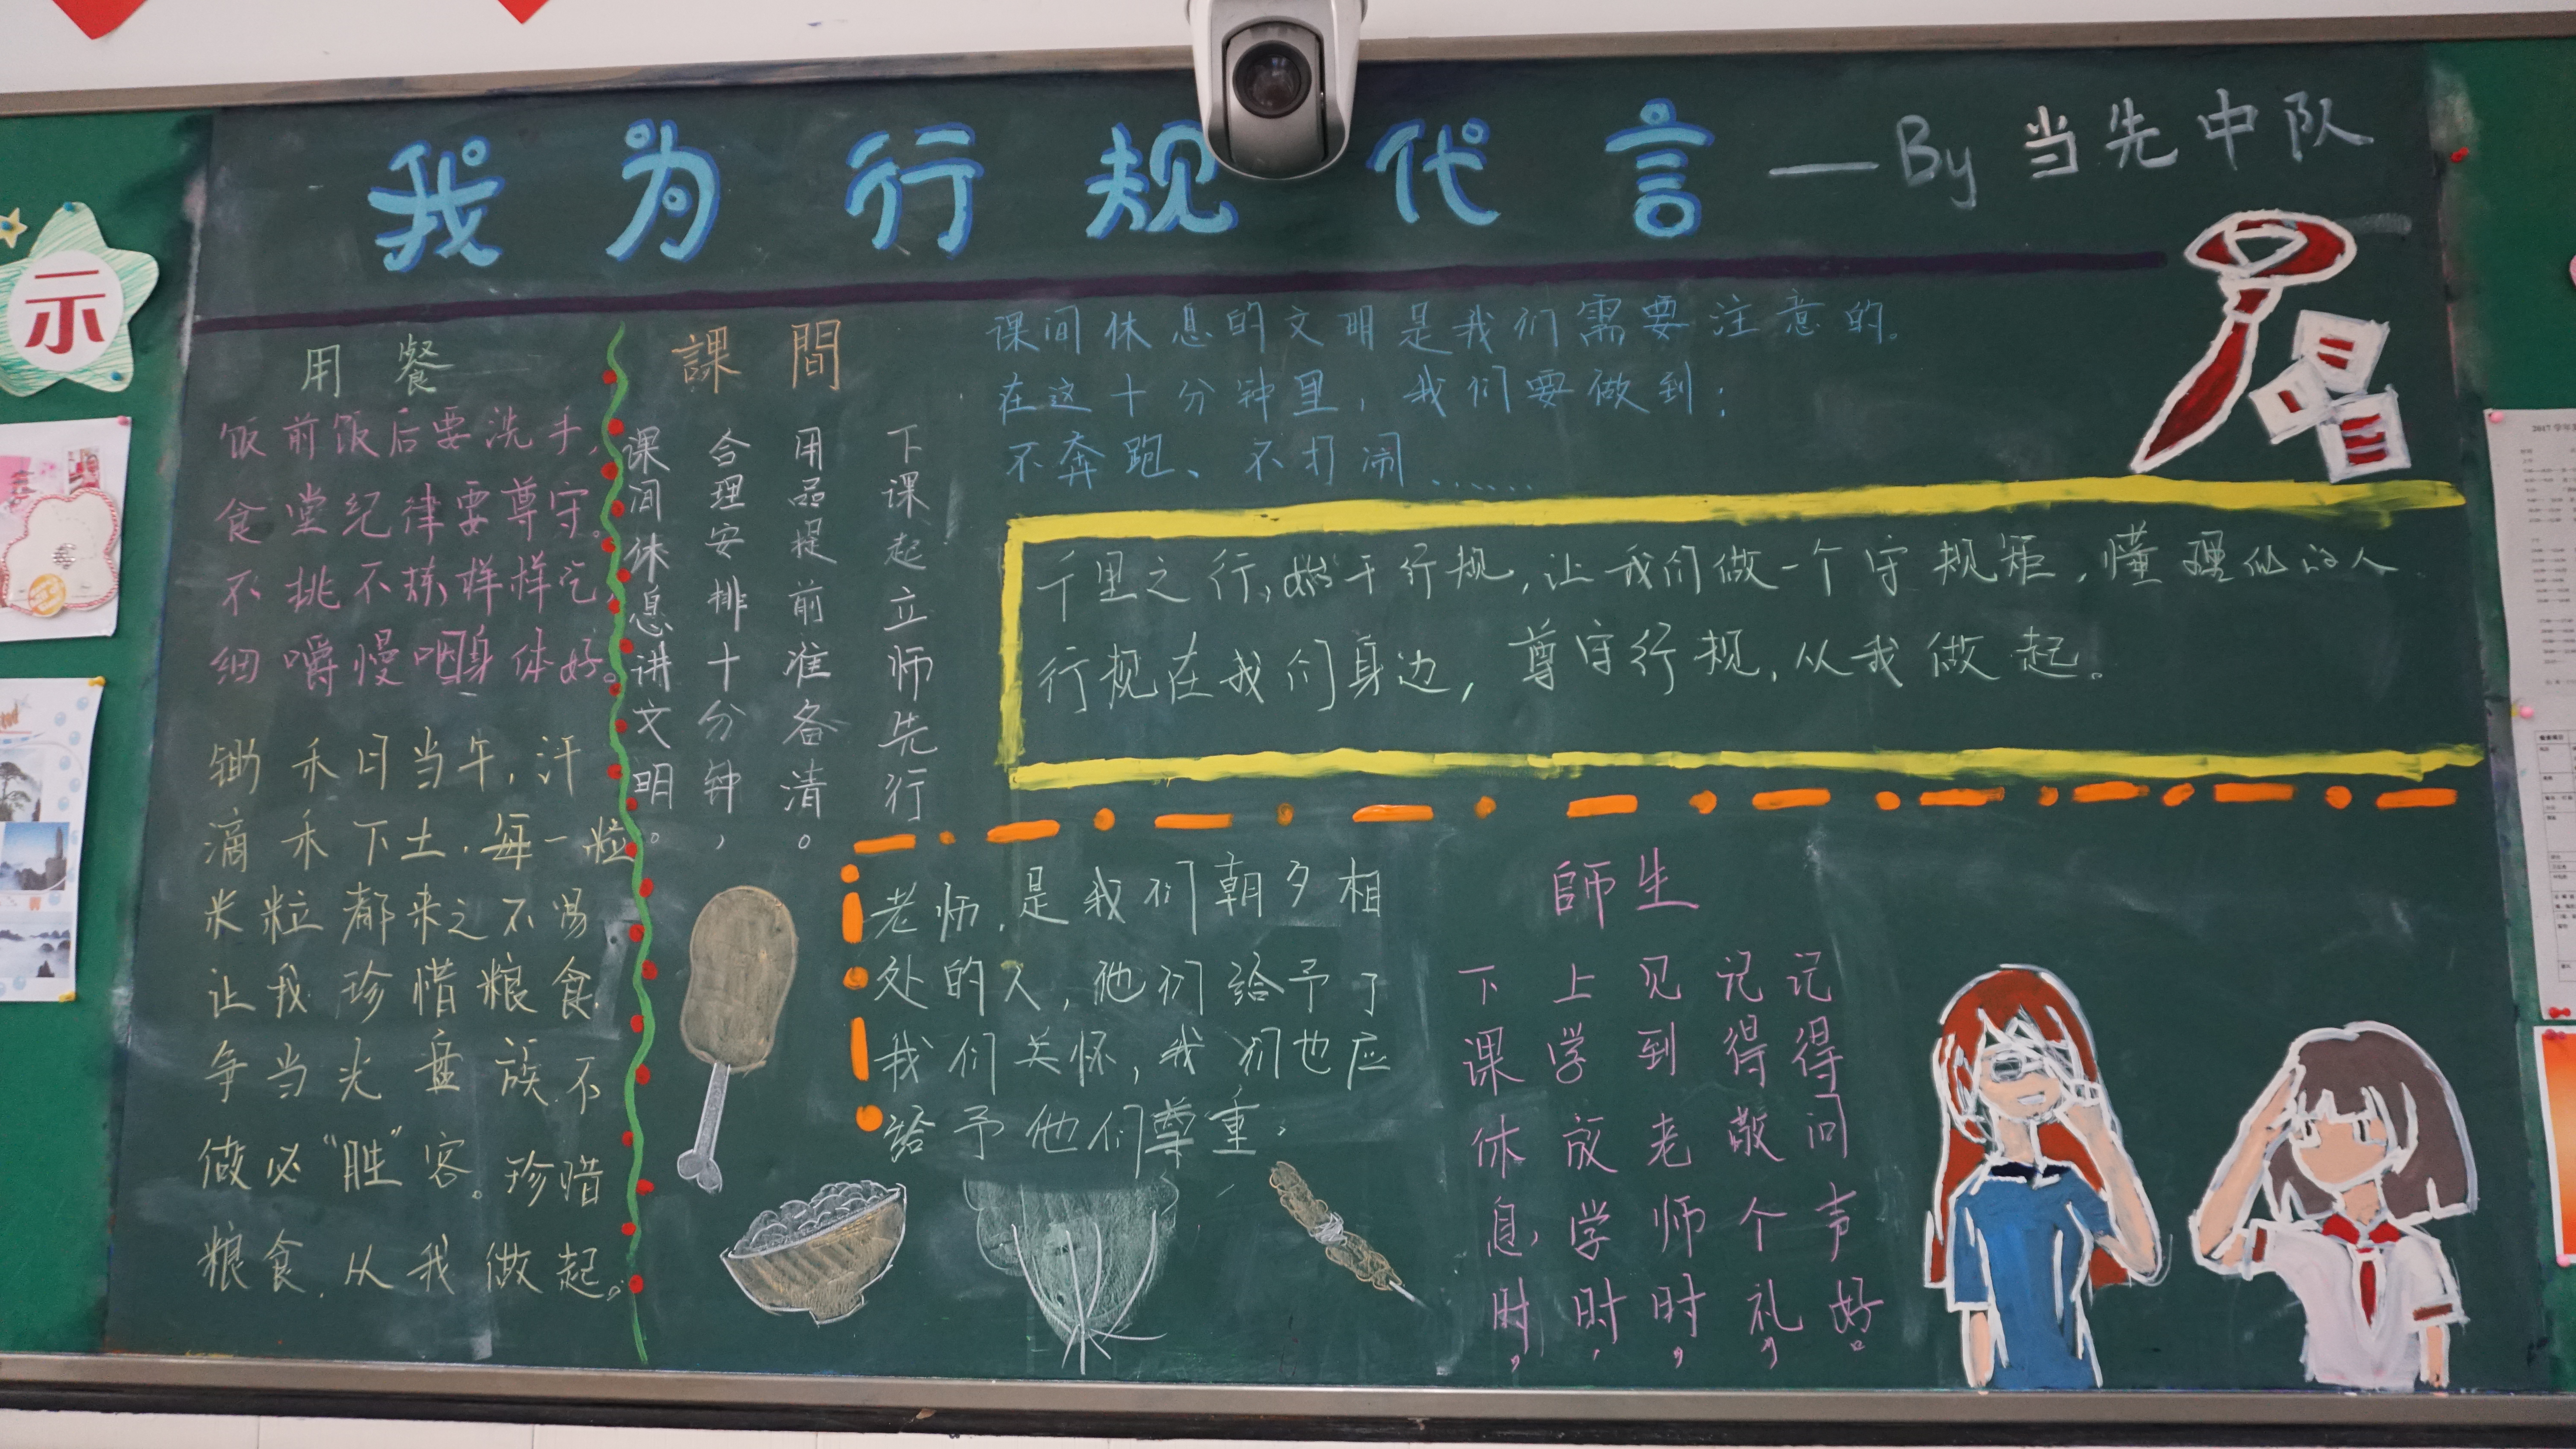 我为行规代言 —By 当先中队
示
用餐
饭前饭后要洗手,
食堂纪律要尊守。
不挑不拣样样吃,
细嚼慢咽身体好。
锄禾日当午,汗
滴禾下土.每一粒
米粒都来之不易
让我珍惜粮食.
争当光盘族.不
做必“胜”客。珍惜
粮食.从我做起。
課間
下课起立师先行
用品提前准备清。
合理安排十分钟,
课间休息讲文明。
课间休息的文明是我们需要注意的。
在这十分钟里,我们要做到:
不奔跑、不打闹......
千里之行,始于行规,让我们做一个守规矩,懂理仪的人
行规在我们身边,尊守行规,从我做起。
老师,是我们朝夕相
处的人,他们给予了
我们关怀,我们也应
给予他们尊重。
師生
下课休息时,
上学放学时,
见到老师时,
记得敬个礼,
记得问声好。